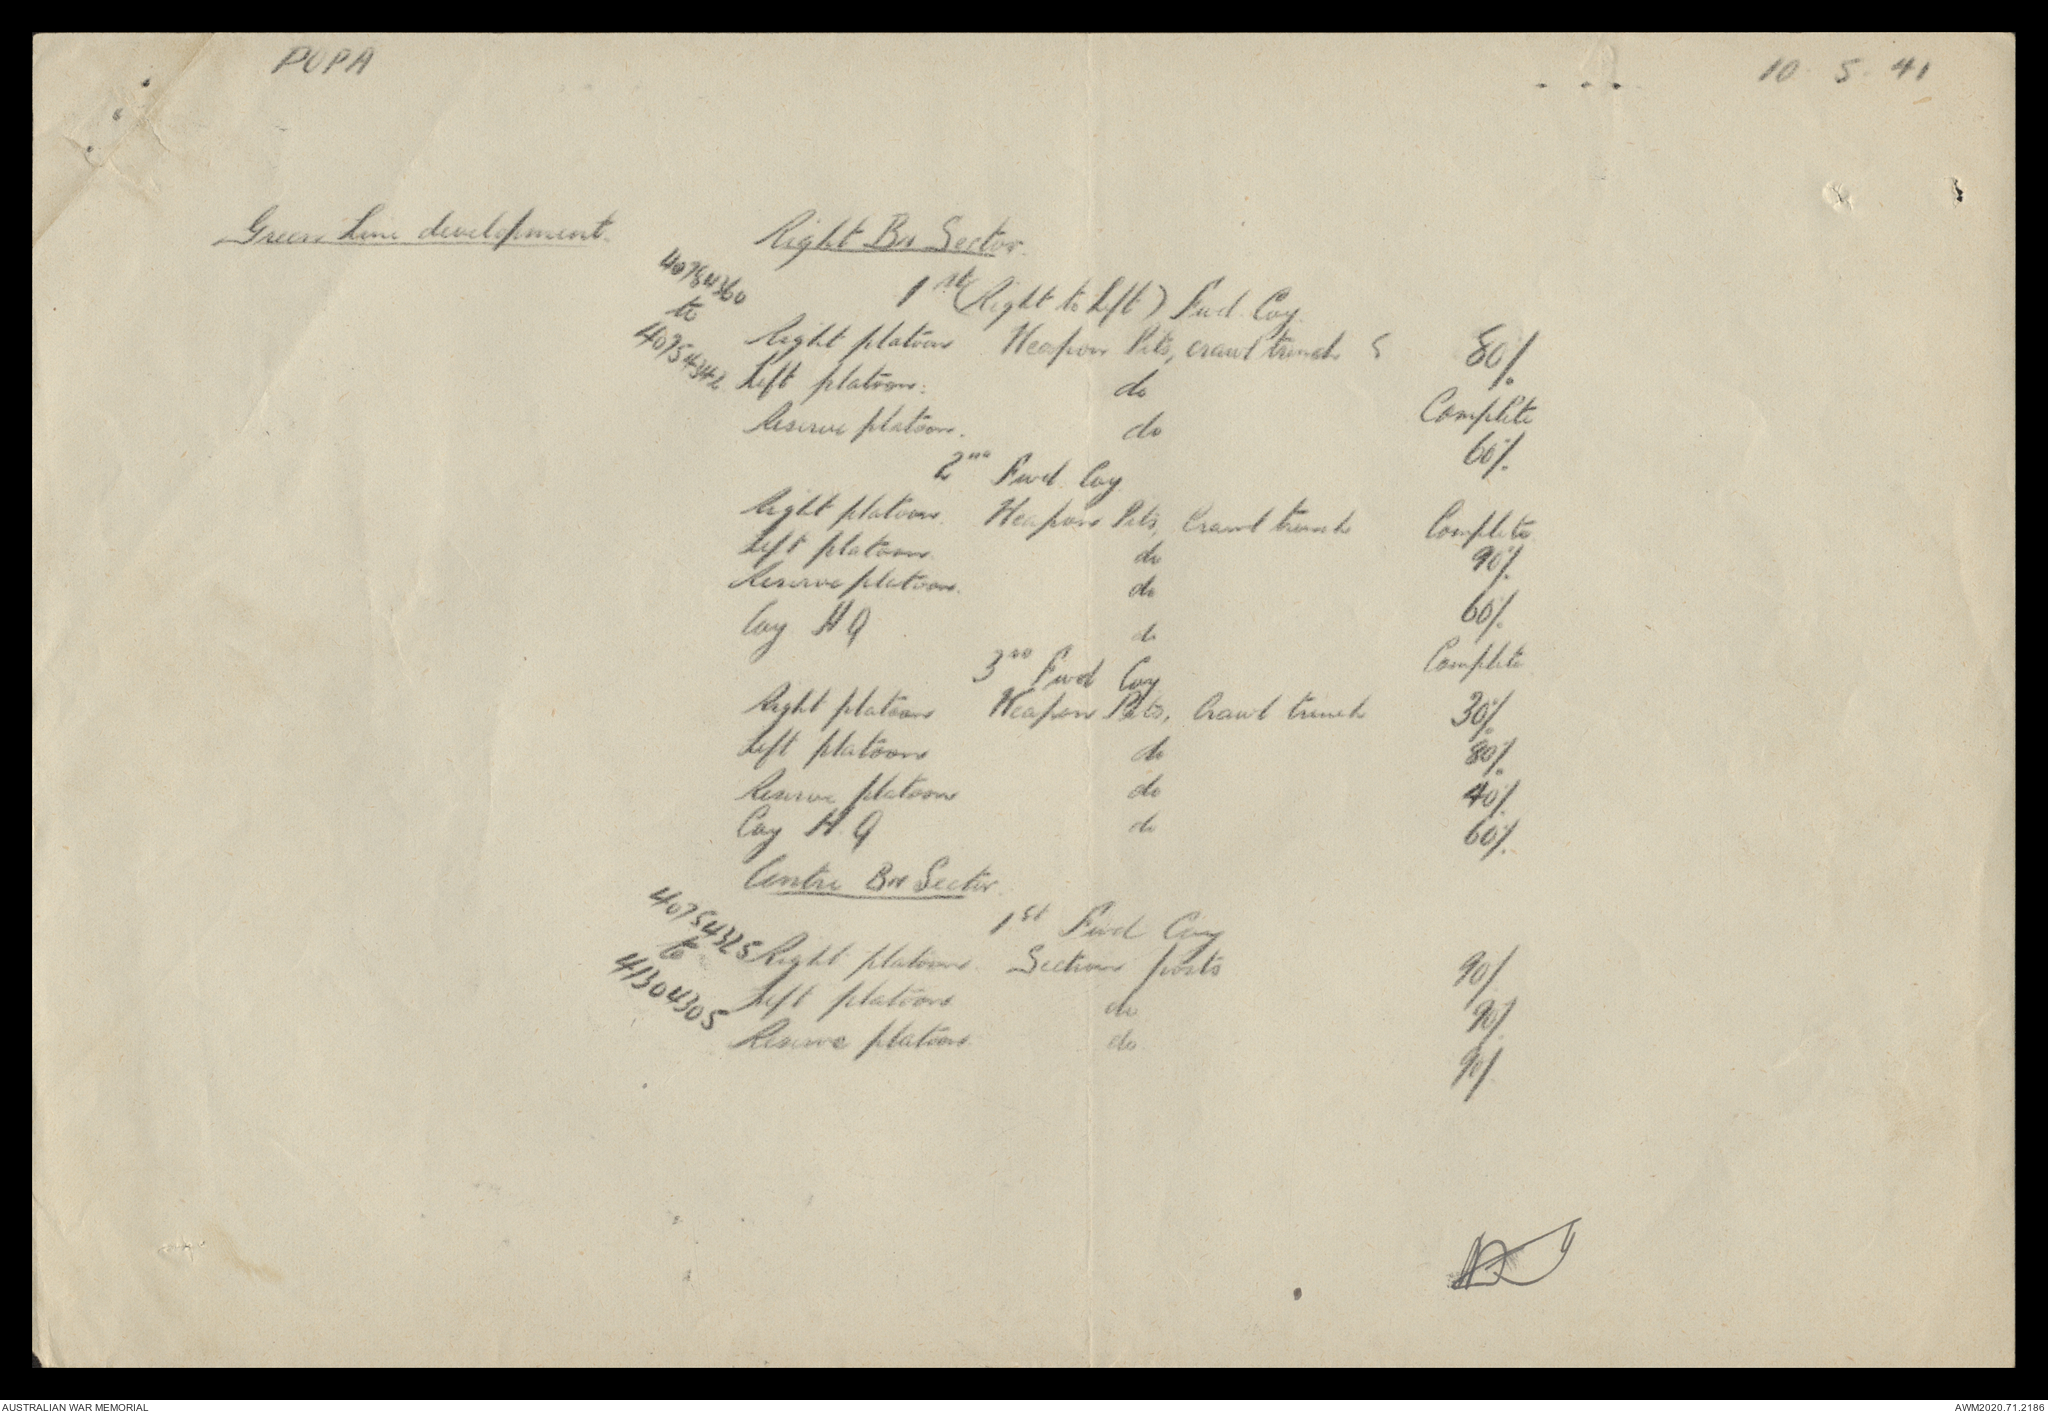 POPA 10 . 5 . 41
Green Line development. Right Bn Sector.
40754360
to
40754342
1st (Right to Left) Fwd. Coy.
Right platoon Weapon Pits, crawl trench 80%
Left platoon. do Complete
Reserve platoon. do 60%
2nd Fwd. Coy
Right platoon. Weapon Pits, Crawl trench Complete
Left platoon. do 90%
Reserve platoon. do 60%
Coy H Q do Complete
3rd Fwd Coy
Right platoon Weapon Pits, Crawl trench 30%
Left platoon do 80%
Reserve platoon do 40%
Coy H.Q do 60%
Centre Bn Sector.
40754325
to
41304305
1st Fwd Coy
Right platoon. Section posts 90%
Left platoon do 90%
Reserve platoon. do 90%
AUSTRALIAN WAR MEMORIAL AWM2020.71.2186